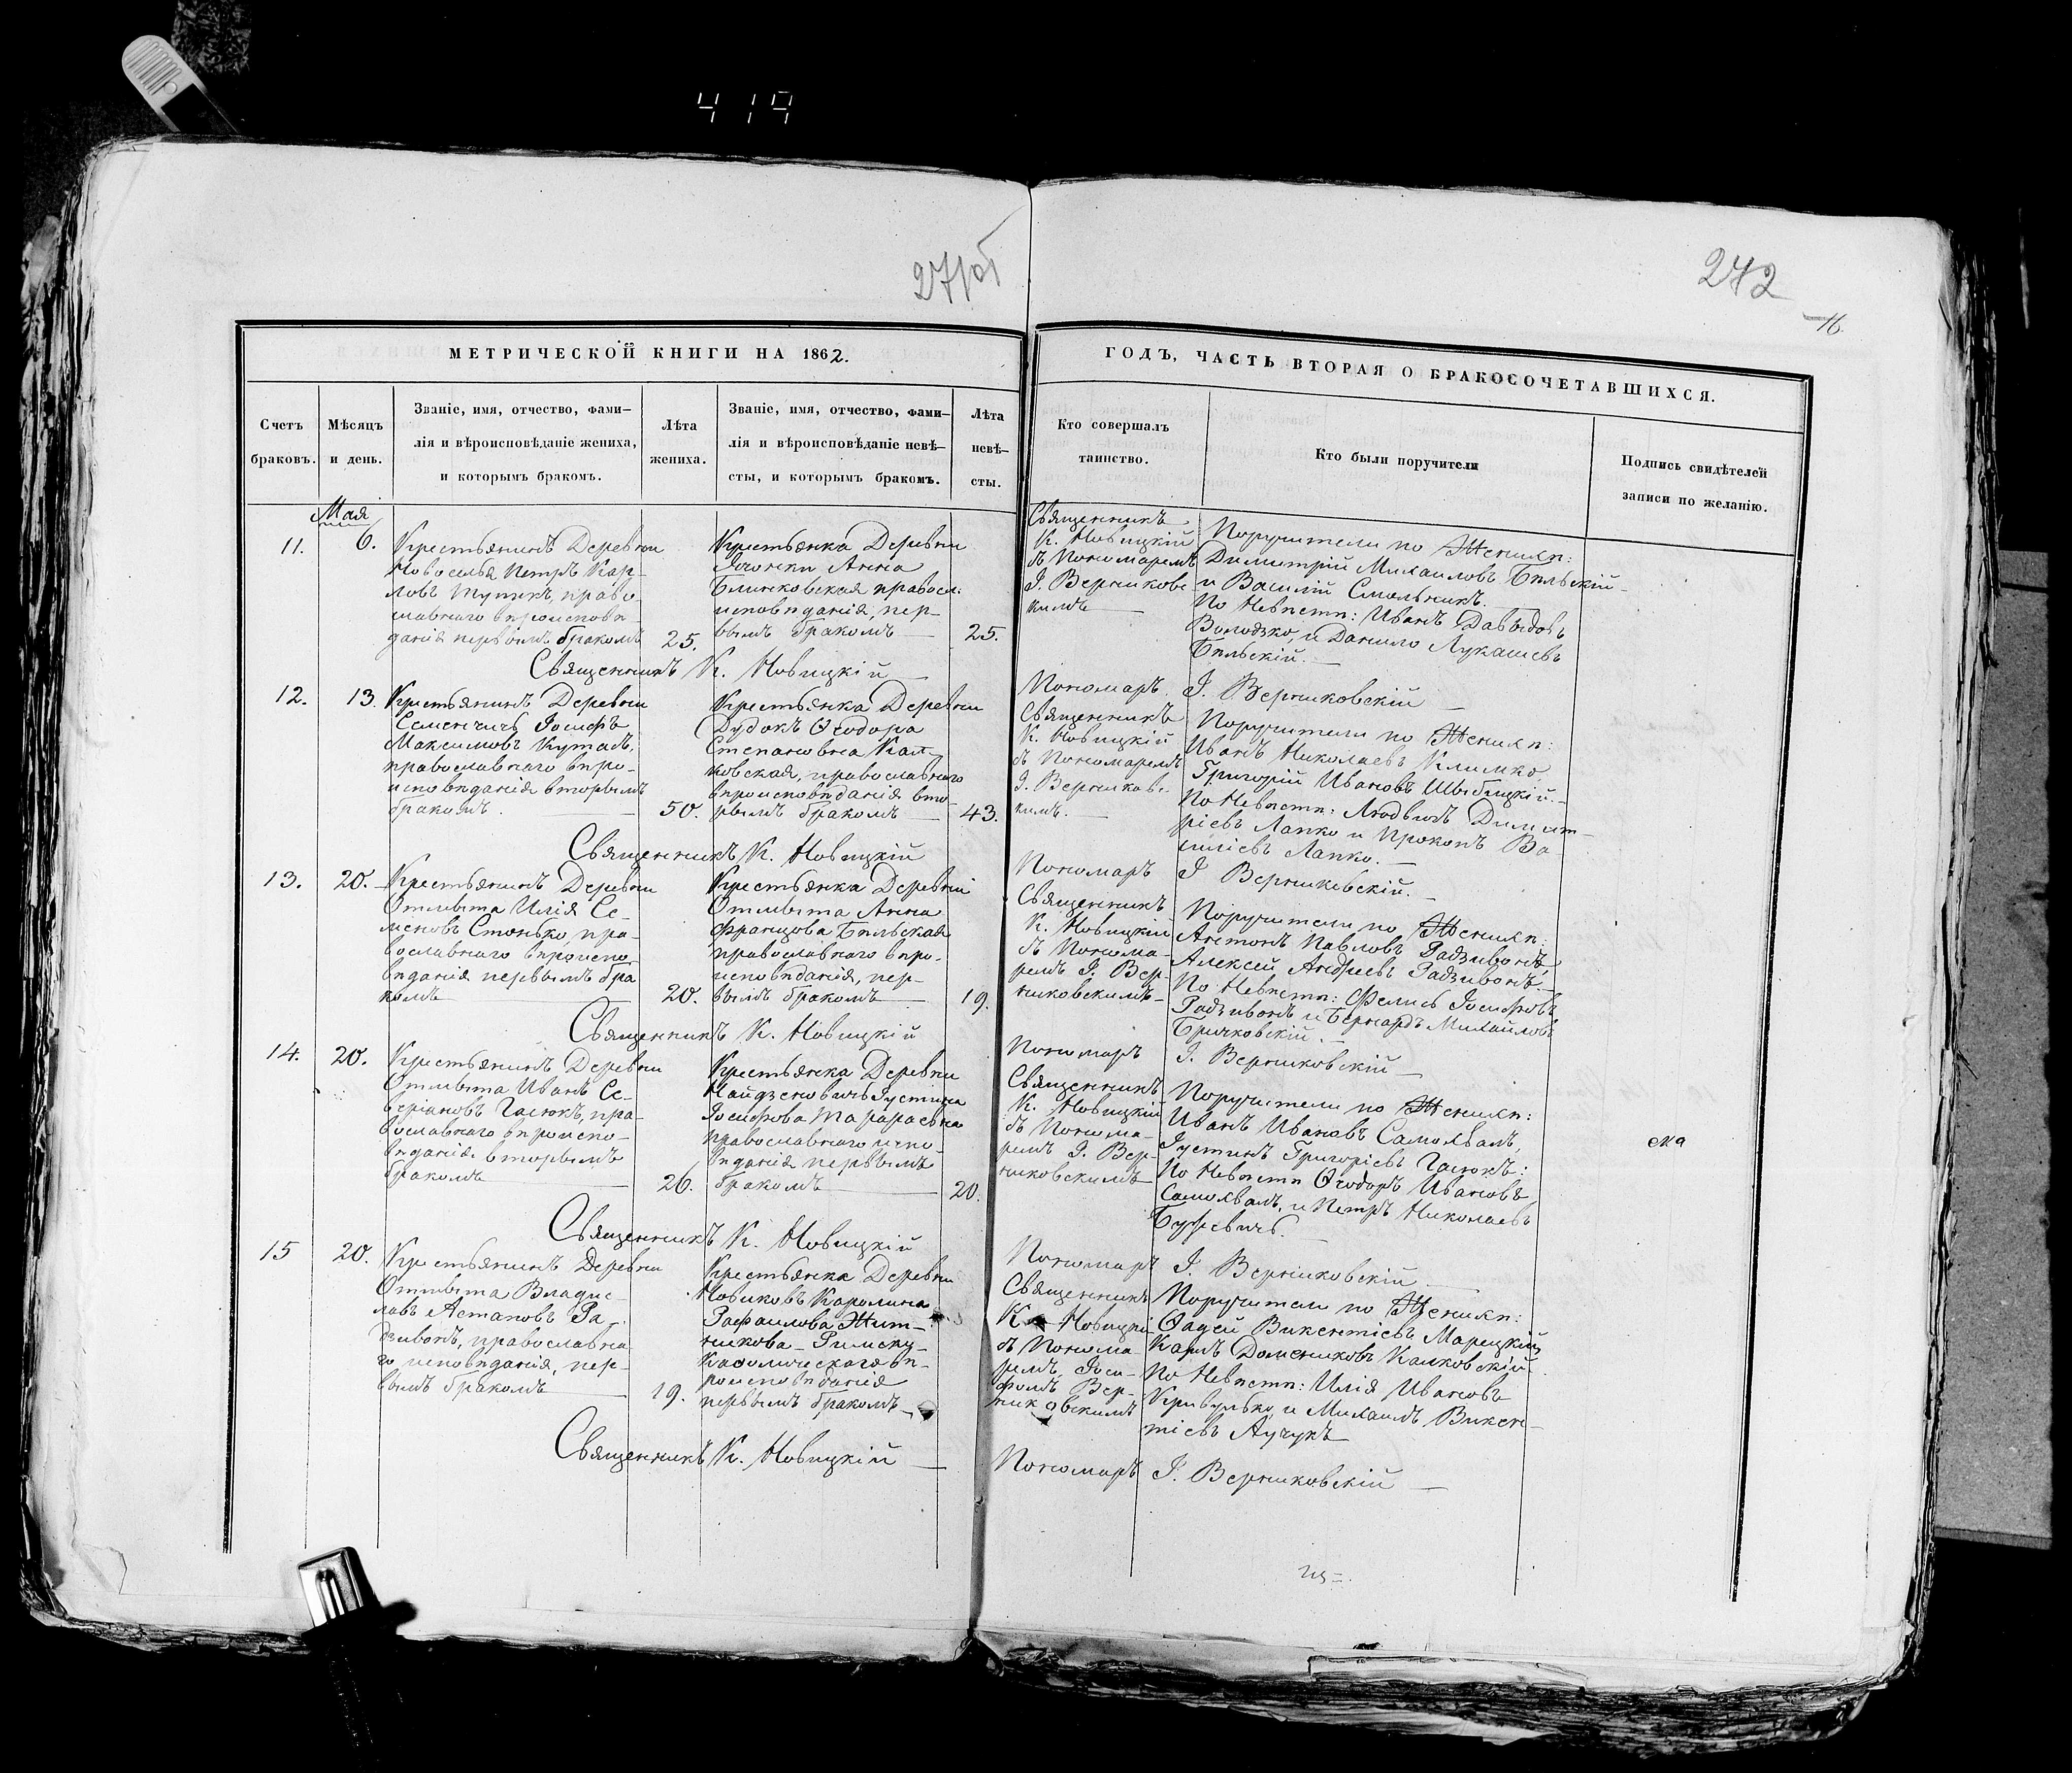 419
242
16.
МЕТРИЧЕСКОЙ КНИГИ НА 1862.
Счетъ
браковъ.
Мѣсяцъ
и день.
Званіе, имя, отчество, фами-
лія и вѣроисповѣданіе жениха,
и которымъ бракомъ.
Лѣта
жениха.
Званіе, имя, отчество, фами-
лія и вѣроисповѣданіе невѣ-
сты, и которымъ бракомъ.
Лѣта
невѣ-
сты.
ГОДЪ, ЧАСТЬ ВТОРАЯ О БРАКОСОЧЕТАВШИХСЯ.
Кто совершалъ
таинство.
Кто были поручители
Подпись свидѣтелей
записи по желанію.
Мая
11.
6.
Крестьянинъ Деревни
Новоселья Петръ Кар-
ловъ Тупикъ, право-
славнаго вѣроисповѣ-
данія первымъ бракомъ
25.
Крестьянка Деревни
Анна
Блинковская правосл:
исповѣданія, пер-
вымъ бракомъ
25.
Священникъ
К. Новицкій
съ Пономаремъ
І. Верниковс-
кимъ
Поручители по Женихѣ:
Димитрій Михаиловъ Бѣльскій
и Василій Смольникъ.
По Невѣстѣ: Иванъ Давыдовъ
Володзко, и Данило Лукашевъ
Бѣльскій.
Священникъ К. Новицкій
Пономарь І. Верниковскій
12.
13.
Крестьянинъ Деревни
Семенчичъ Іосифъ
Максимовъ Куталъ,
православнаго вѣро-
исповѣданія вторымъ
бракомъ.
50.
Крестьянка Деревни
Дудокъ Ѳеодора
Степановна Кал-
ковская, православнаго
вѣроисповѣданія вто-
рымъ бракомъ
43.
Священникъ
К. Новицкій
съ Пономаремъ
І. Верниковс-
кимъ.
Поручители по Женихѣ:
Иванъ Николаевъ Климко,
Григорій Ивановъ Швыбицкій.
По Невѣстѣ: Людвигъ Димит-
ріевъ Лапко и Прокопъ Ва-
силіевъ Лапко.
Священникъ К. Новицкій
Пономарь І. Верниковскій.
13.
20.
Крестьянинъ Деревни
Отмыта Илія Се-
меновъ Стонько, пра-
вославнаго вѣроиспо-
вѣданія первымъ бра
комъ
20.
Крестьянка Деревни
Отмыта Анна
Францова Бѣльская
православнаго вѣро-
исповѣданія, пер-
вымъ бракомъ
19.
Священникъ
К. Новицкій
съ Понома-
ремъ І. Вер-
никовскимъ
Поручители по Женихѣ:
Антонъ Павловъ Радзивонъ,
Алексей Андреевъ Радзивонъ.
По Невѣстѣ: Фелисъ Іосифовъ
Радзивонъ и Бернардъ Михайловъ
Бричковскій.
Священникъ К. Новицкій
Пономарь І. Верниковскій
14.
20.
Крестьянинъ Деревни
Отмыта Иванъ Се-
веріановъ Гасюкъ, пра-
вославнаго вѣроиспо-
вѣданія вторымъ
бракомъ
26.
Крестьянка Деревни
Найдзеновичъ Іустина
Іосифова Тарараевна
православнаго испо-
вѣданія первымъ
бракомъ
20.
Священникъ
К. Новицкій
съ Понома-
ремъ І. Вер-
никовскимъ
Поручители по Женихѣ:
Иванъ Ивановъ Самохвалъ,
Іустинъ Григоріевъ Гасюкъ:
По Невѣстѣ Ѳеодоръ Ивановъ
Самохвалъ, и Петръ Николаевъ
Священникъ К. Новицкій
Пономарь І. Верниковскій
15
20.
Крестьянинъ Деревни
Отмыта Владис-
лавъ Астаповъ Ра-
дзивонъ, православна
го исповѣданія, пер-
вымъ бракомъ
19.
Крестьянка Деревни
Новиковъ Каролина
Рафаилова Жит-
никова Римску-
Каѳолическаго вѣ-
роисповѣданія
первымъ бракомъ
Священникъ
К. Новицкій
съ Понома-
ремъ Іоси-
фомъ Вер-
никовскимъ
Поручители по Женихѣ:
Ѳадей Викентіевъ Марецкій,
Карлъ Домениковъ Калковскій.
По Невѣстѣ: Илія Ивановъ
Кривулько, и Михаилъ Викен-
тіевъ Аучукъ
Священникъ К. Новицкій
Пономарь І. Верниковскій